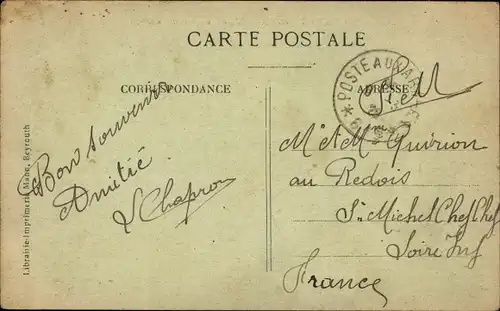 CARTE POSTALE
CORRESPONDANCE
ADRESSE
POSTE AUX ARMÉES
F. M
Bon souvenir
Amitié
Chapron
Mr & Mme Guirion
au Redois
St Michel Chef Chef
Loire Inf
France
Librairie-Imprimerie Beyrouth